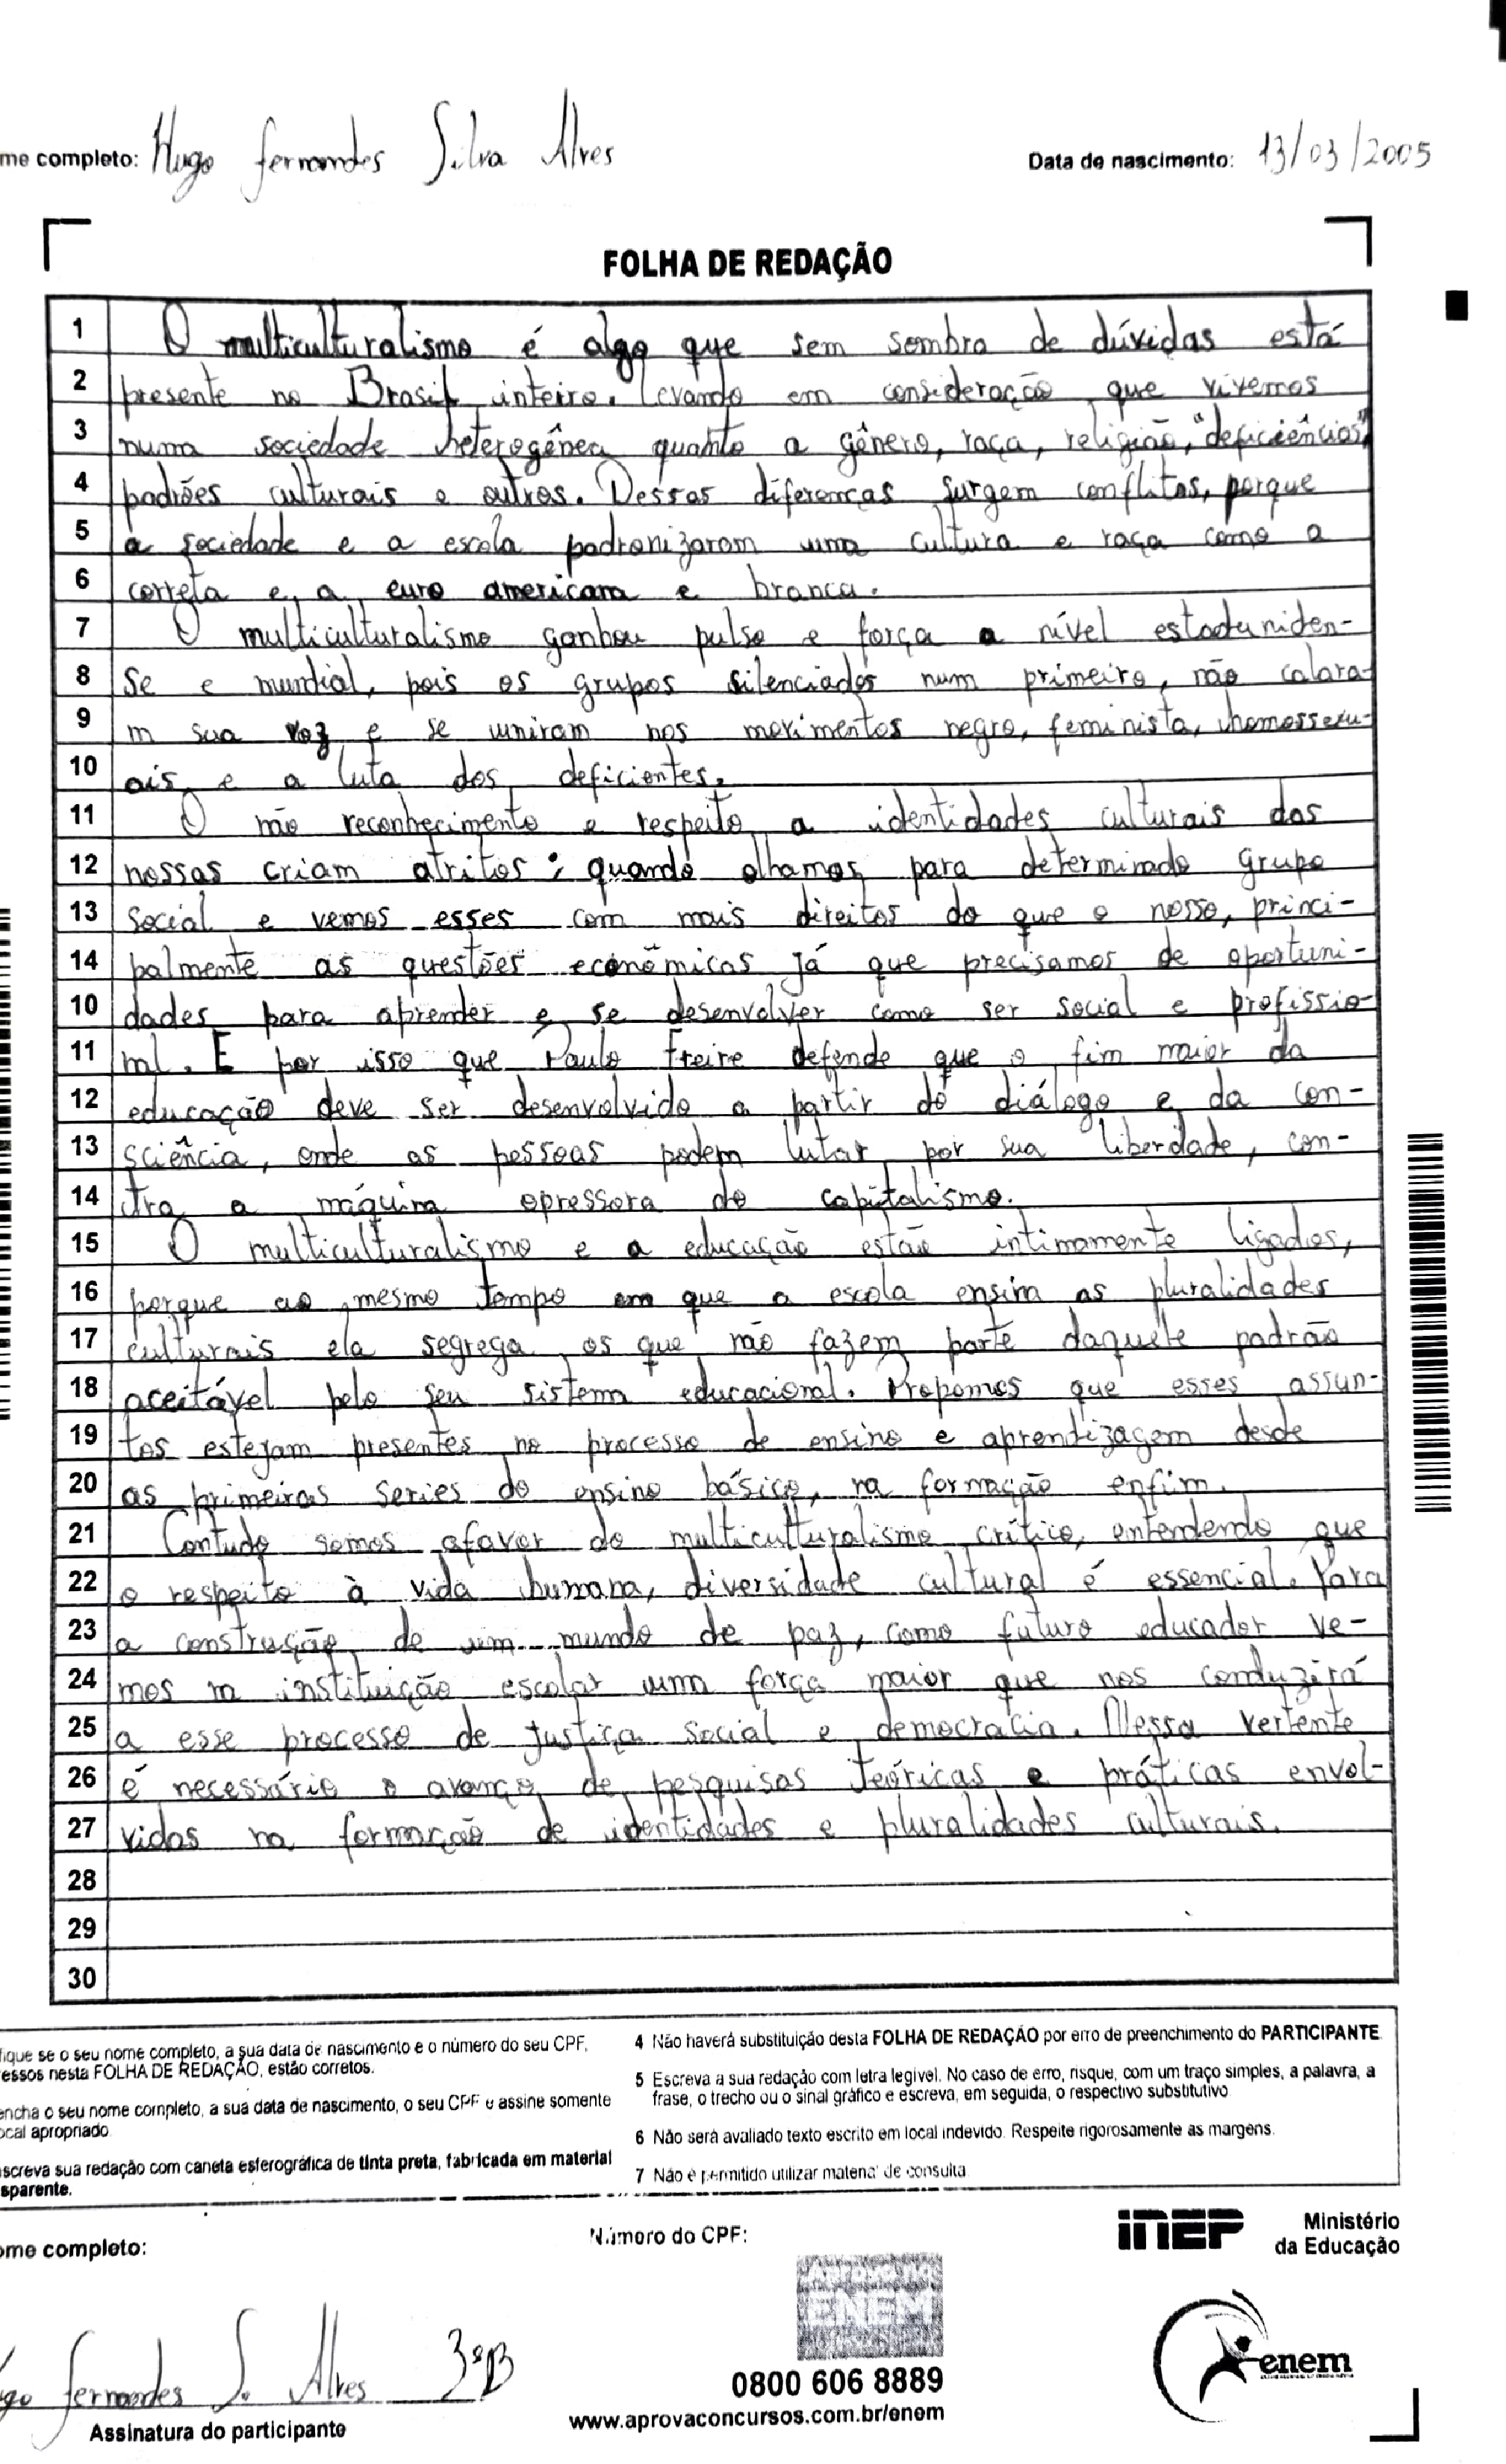 me completo: Hugo Fernandes Silva Alves
Data de nascimento: 13/03/2005
FOLHA DE REDAÇÃO
1 O multiculturalismo é algo que sem sombra de dúvidas está
2 presente no Brasil inteiro. Levando em consideração que vivemos
3 numa sociedade heterogênea quanto a gênero, raça, religião, "deficiências",
4 padrões culturais e outros. Dessas diferenças surgem conflitos, porque
5 a sociedade e a escola padronizaram uma cultura e raça como a
6 correta e, a euro americana e branca.
7 O multiculturalismo ganhou pulso e força a nível estaduniden-
8 se e mundial, pois os grupos silenciados num primeiro, não calara-
9 m sua voz e se uniram nos movimentos negro, feminista, homossexu-
10 ais, e a luta dos deficientes.
11 O não reconhecimento e respeito a identidades culturais das
12 nossas criam atritos; quando olhamos para determinado grupo
13 social e vemos esses com mais direitos do que o nosso, princi-
14 palmente as questões econômicas já que precisamos de oportuni-
10 dades para aprender e se desenvolver como ser social e profissio-
11 nal. E por isso que Paulo Freire defende que o fim maior da
12 educação deve ser desenvolvido a partir do diálogo e da con-
13 sciência, onde as pessoas podem lutar por sua liberdade, con-
14 tra a máquina opressora do capitalismo.
15 O multiculturalismo e a educação estão intimamente ligados,
16 porque ao mesmo tempo em que a escola ensina as pluralidades
17 culturais ela segrega os que não fazem parte daquele padrão
18 aceitável pelo seu sistema educacional. Propomos que esses assun-
19 tos estejam presentes no processo de ensino e aprendizagem desde
20 as primeiras series do ensino básico, na formação enfim.
21 Contudo somos afavor do multiculturalismo crítico, entendendo que
22 o respeito à vida humana, diversidade cultural é essencial. Para
23 a construção de um mundo de paz, como futuro educador ve-
24 mos na instituição escolar uma força maior que nos conduzirá
25 a esse processo de justiça social e democracia. Nessa vertente
26 é necessário o avanço de pesquisas teóricas e práticas envol-
27 vidas na formação de identidades e pluralidades culturais.
28
29
30
fique se o seu nome completo, a sua data de nascimento e o número do seu CPF,
essos nesta FOLHA DE REDAÇÃO, estão corretos.
encha o seu nome completo, a sua data de nascimento, o seu CPF e assine somente
ocal apropriado
screva sua redação com caneta esferográfica de tinta preta, fabricada em material
sparente.
4 Não haverá substituição desta FOLHA DE REDAÇÃO por erro de preenchimento do PARTICIPANTE
5 Escreva a sua redação com letra legível. No caso de erro, risque, com um traço simples, a palavra, a
frase, o trecho ou o sinal gráfico e escreva, em seguida, o respectivo substitutivo
6 Não será avaliado texto escrito em local indevido. Respeite rigorosamente as margens.
7 Não é permitido utilizar material de consulta
ome completo:
Número do CPF:
inep
Ministério
da Educação
Aprova no
ENEM
enem
go Fernandes S. Alves 3ºB
Assinatura do participante
0800 606 8889
www.aprovaconcursos.com.br/enem